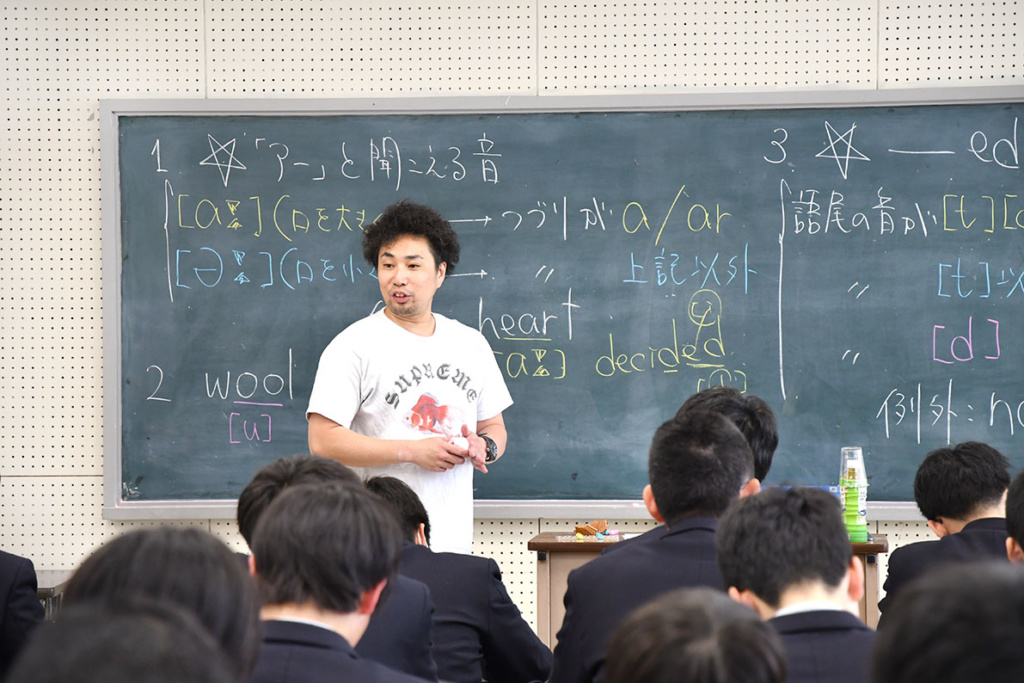 1. ☆「アー」と聞こえる音
[aː](口を大き → つづりが a/ar
[əː](口を小 → 〃 上記以外
heart
[aː]
decided
2 wool
[u]
3. ☆ ― ed
語尾の音が [t][d
〃 [t]以
〃 [d]
例外:
SUPREME